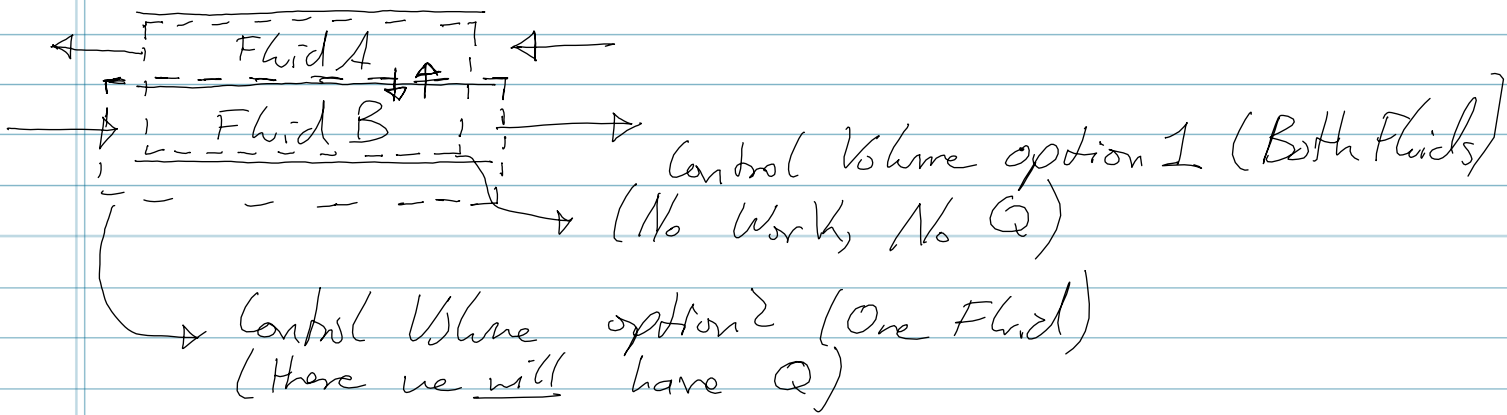 Fluid A
Fluid B
Control Volume option 1 (Both Fluids)
(No Work, No Q)
Control Volume option 2 (One Fluid)
(there we will have Q)